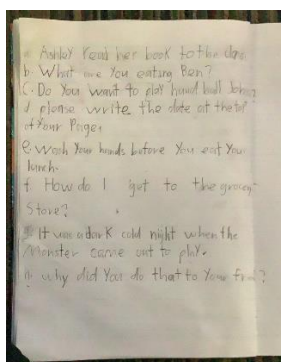 a. Ashley read her book to the class
b. What are You eating Ben?
C. Do You want to play hand ball John?
d. please write the date at the top
of Your Page.
e. Wash Your hands before You eat You
lunch.
f How do I get to the grocery
Store?
It was a dark cold night when the
Monster came out to play.
h. why did You do that to Your friend?